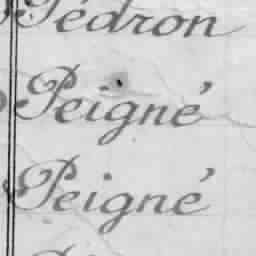 Pédron
Peigné
Peigné